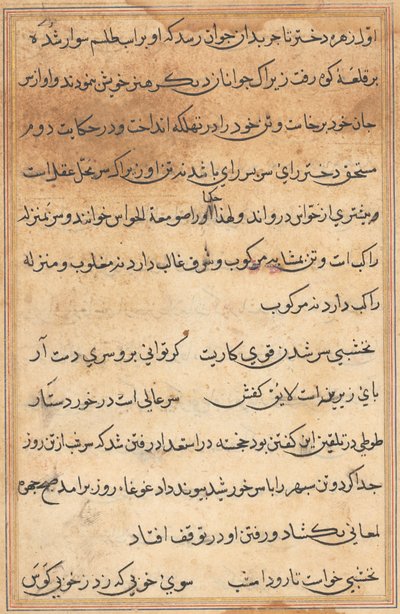 اول زهره دختر تاجر بدان جوان رسد که او بر اسپ طلسم سوار شده
بر قلعهٔ کوه رفت زیراک جوانان دیگر هنر خویش نمودند و او از سر
جان خود برخاست و تن خود را در تهلکه انداخت و در حکایت دوم
مستحق دختر رای سر پسر رای باشد نه تن او زیراکه سر محل عقل است
و بیشتری از حواس درو اند و لهذا حکما او را صومعة الحواس خوانند و سر بمنزله
راکب است و تن بمثابه مرکوب و شرف غالب دارد نه مغلوب و منزله
راکب دارد نه مرکوب
نخشبی سر شدن قوی کاریست گر توانی برو سری دست آر
پای زیرینه است لایق کفش سر عالی است در خور دستار
طوطی در تلقین این گفتن بود خجسته در استعداد رفتن شد که سر شب از تن روز
جدا کرد و تن سپهر را با سر خورشید پیوند داد غوغاء روز برامد صبح چهره
لمعانی بکشاد و رفتن او در توقف افتاد
نخشبی خواست تا رود امشب سوی خوبی که زد ز خوبی کوس